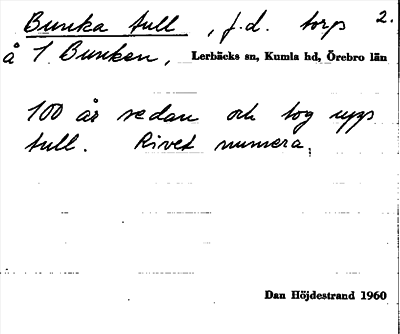 Bunka tull, f.d. torp 2.
å 1 Bunken, Lerbäcks sn, Kumla hd, Örebro län
100 år sedan och tog upp
tull. Rivet numera.
Dan Höjdestrand 1960